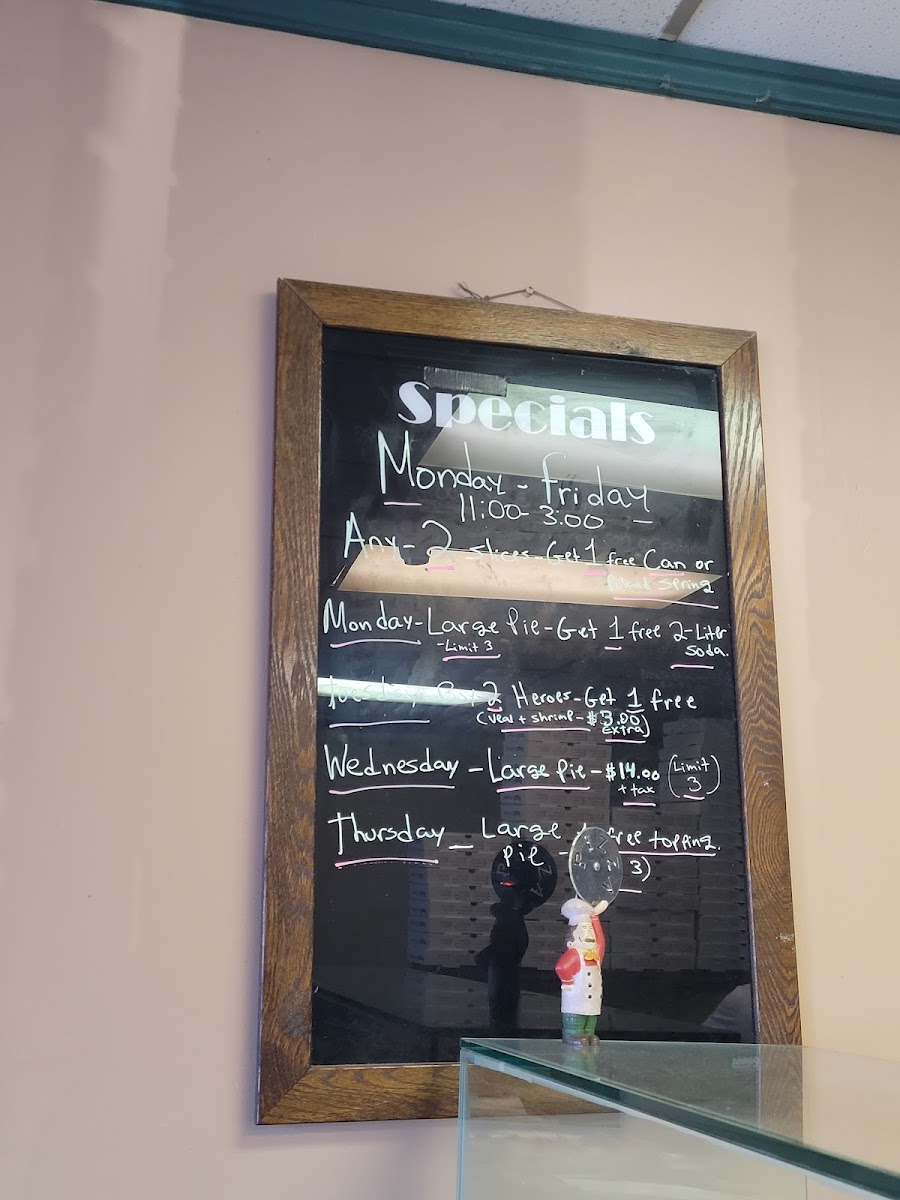 Specials
Monday - Friday
11:00 - 3:00
Any - 2 slices - Get 1 free Can or
Poland Spring
Monday - Large Pie - Get 1 free 2-Liter
- Limit 3
soda.
Tuesday Buy 2 Heroes - Get 1 free
(veal + shrimp - $3.00
extra)
Wednesday - Large Pie - $14.00 (Limit
+ tax
3)
Thursday - Large free topping.
pie -
3)